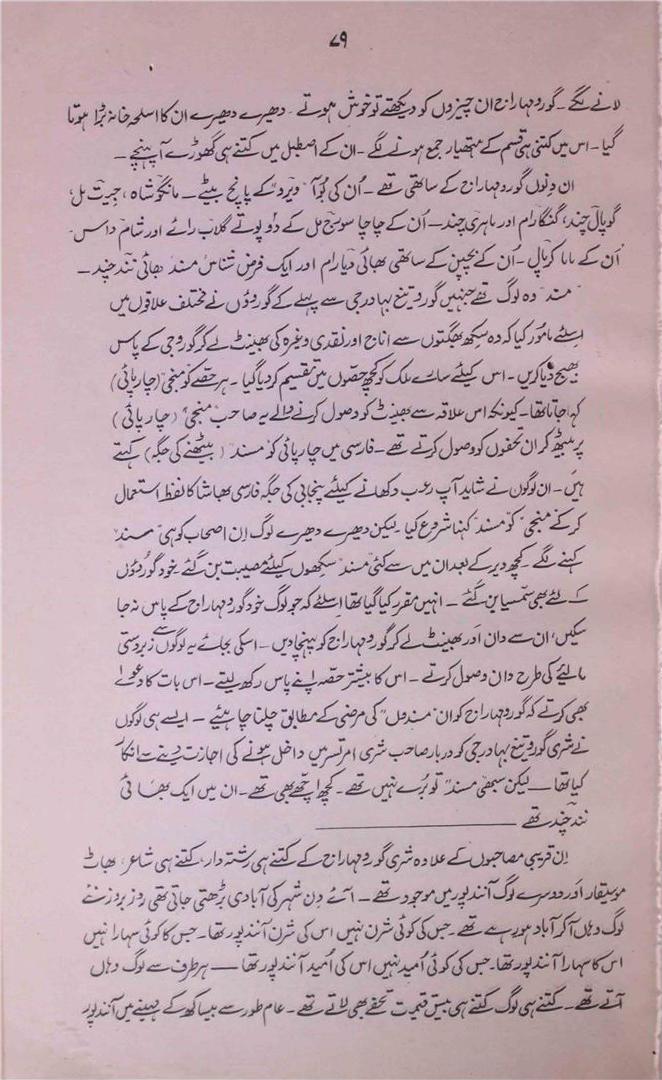 ۷۹
لانے لگے۔ گورو مہاراج ان چیزوں کو دیکھتے تو خوش ہوتے۔ دھیرے دھیرے ان کا اسلحہ خانہ بڑا ہوتا
گیا۔ اس میں کتنی ہی قسم کے ہتھیار جمع ہونے لگے۔ ان کے اصطبل میں کتنے ہی گھوڑے آ پہنچے۔
ان دنوں گورو مہاراج کے ساتھی تھے۔ اُن کی بُوآ "ویرو" کے پانچ بیٹے۔ مانگو شاہ، جیت مل،
گوپال چند، گنگا رام اور ماہری چند۔ اُن کے چاچا سورج مل کے دو پوتے گلاب رائے اور شام داس۔
اُن کے ماما کرپال۔ اُن کے بچپن کے ساتھی بھائی دیا رام اور ایک فرض شناس مسند بھائی نند چند۔
"مسند" وہ لوگ تھے جنہیں گورو تیغ بہادر جی سے پہلے کے گوروؤں نے مختلف علاقوں میں
اسلئے مامور کیا کہ وہ سکھ بھگتوں سے اناج اور نقدی وغیرہ کی بھینٹ لے کر گورو جی کے پاس
بھیج دیا کریں۔ اس کیلئے سارے ملک کو کچھ حصّوں میں تقسیم کر دیا گیا۔ ہر حصّے کو منجی (چارپائی)
کہا جاتا تھا۔ کیونکہ اس علاقہ سے بھینٹ کو وصول کرنے والے یہ صاحب "منجی" (چارپائی)
پر بیٹھ کر ان تحفوں کو وصول کرتے تھے۔ فارسی میں چارپائی کو "مسند" (بیٹھنے کی جگہ) کہتے
ہیں۔ ان لوگوں نے شاید آپ رعب دکھانے کیلئے پنجابی کی جگہ فارسی بھاشا کا لفظ استعمال
کر کے "منجی" کو "مسند" کہنا شروع کیا۔ لیکن دھیرے دھیرے لوگ اِن اصحاب کو ہی "مسند"
کہنے لگے۔ کچھ دیر کے بعد ان میں سے کئی "مسند" سکھوں کیلئے مصیبت بن گئے۔ خود گوروؤں
کے لئے بھی سمسیا بن گئے۔ انہیں مقرر کیا گیا تھا اسلئے کہ جو لوگ خود گورو مہاراج کے پاس نہ جا
سکیں، ان سے دان اور بھینٹ لے کر گورو مہاراج کو پہنچا دیں۔ اسکی بجائے یہ لوگوں سے زبردستی
مالیئے کی طرح دان وصول کرتے۔ اس کا بیشتر حصّہ اپنے پاس رکھ لیتے۔ اس بات کا دعویٰ
بھی کرتے کہ گورو مہاراج کو ان "مسندوں" کی مرضی کے مطابق چلنا چاہیئے۔ ایسے ہی لوگوں
نے شری گورو تیغ بہادر جی کو دربار صاحب شری امرتسر میں داخل ہونے کی اجازت دینے سے انکار
کیا تھا — لیکن سبھی "مسند" تو بُرے نہیں تھے۔ کچھ اچھے بھی تھے۔ ان میں ایک بھائی
نند چند تھے ——
اِن قریبی مصاحبوں کے علاوہ شری گورو مہاراج کے کتنے ہی رشتہ دار، کتنے ہی شاعر، بھاٹ
موسیقار اور دوسرے لوگ آنند پور میں موجود تھے۔ آئے دِن شہر کی آبادی بڑھتی جاتی تھی روز بروز نئے
لوگ وہاں آکر آباد ہو رہے تھے۔ جس کی کوئی شرن نہیں اس کی شرن آنند پور تھا۔ جس کا کوئی سہارا نہیں
اس کا سہارا آنند پور تھا۔ جس کی کوئی اُمید نہیں اس کی اُمید آنند پور تھا — ہر طرف سے لوگ وہاں
آتے تھے۔ کتنے ہی لوگ کتنے ہی بیش قیمت تحفے بھی لاتے تھے۔ عام طور سے بیساکھ کے مہینے میں آنند پور